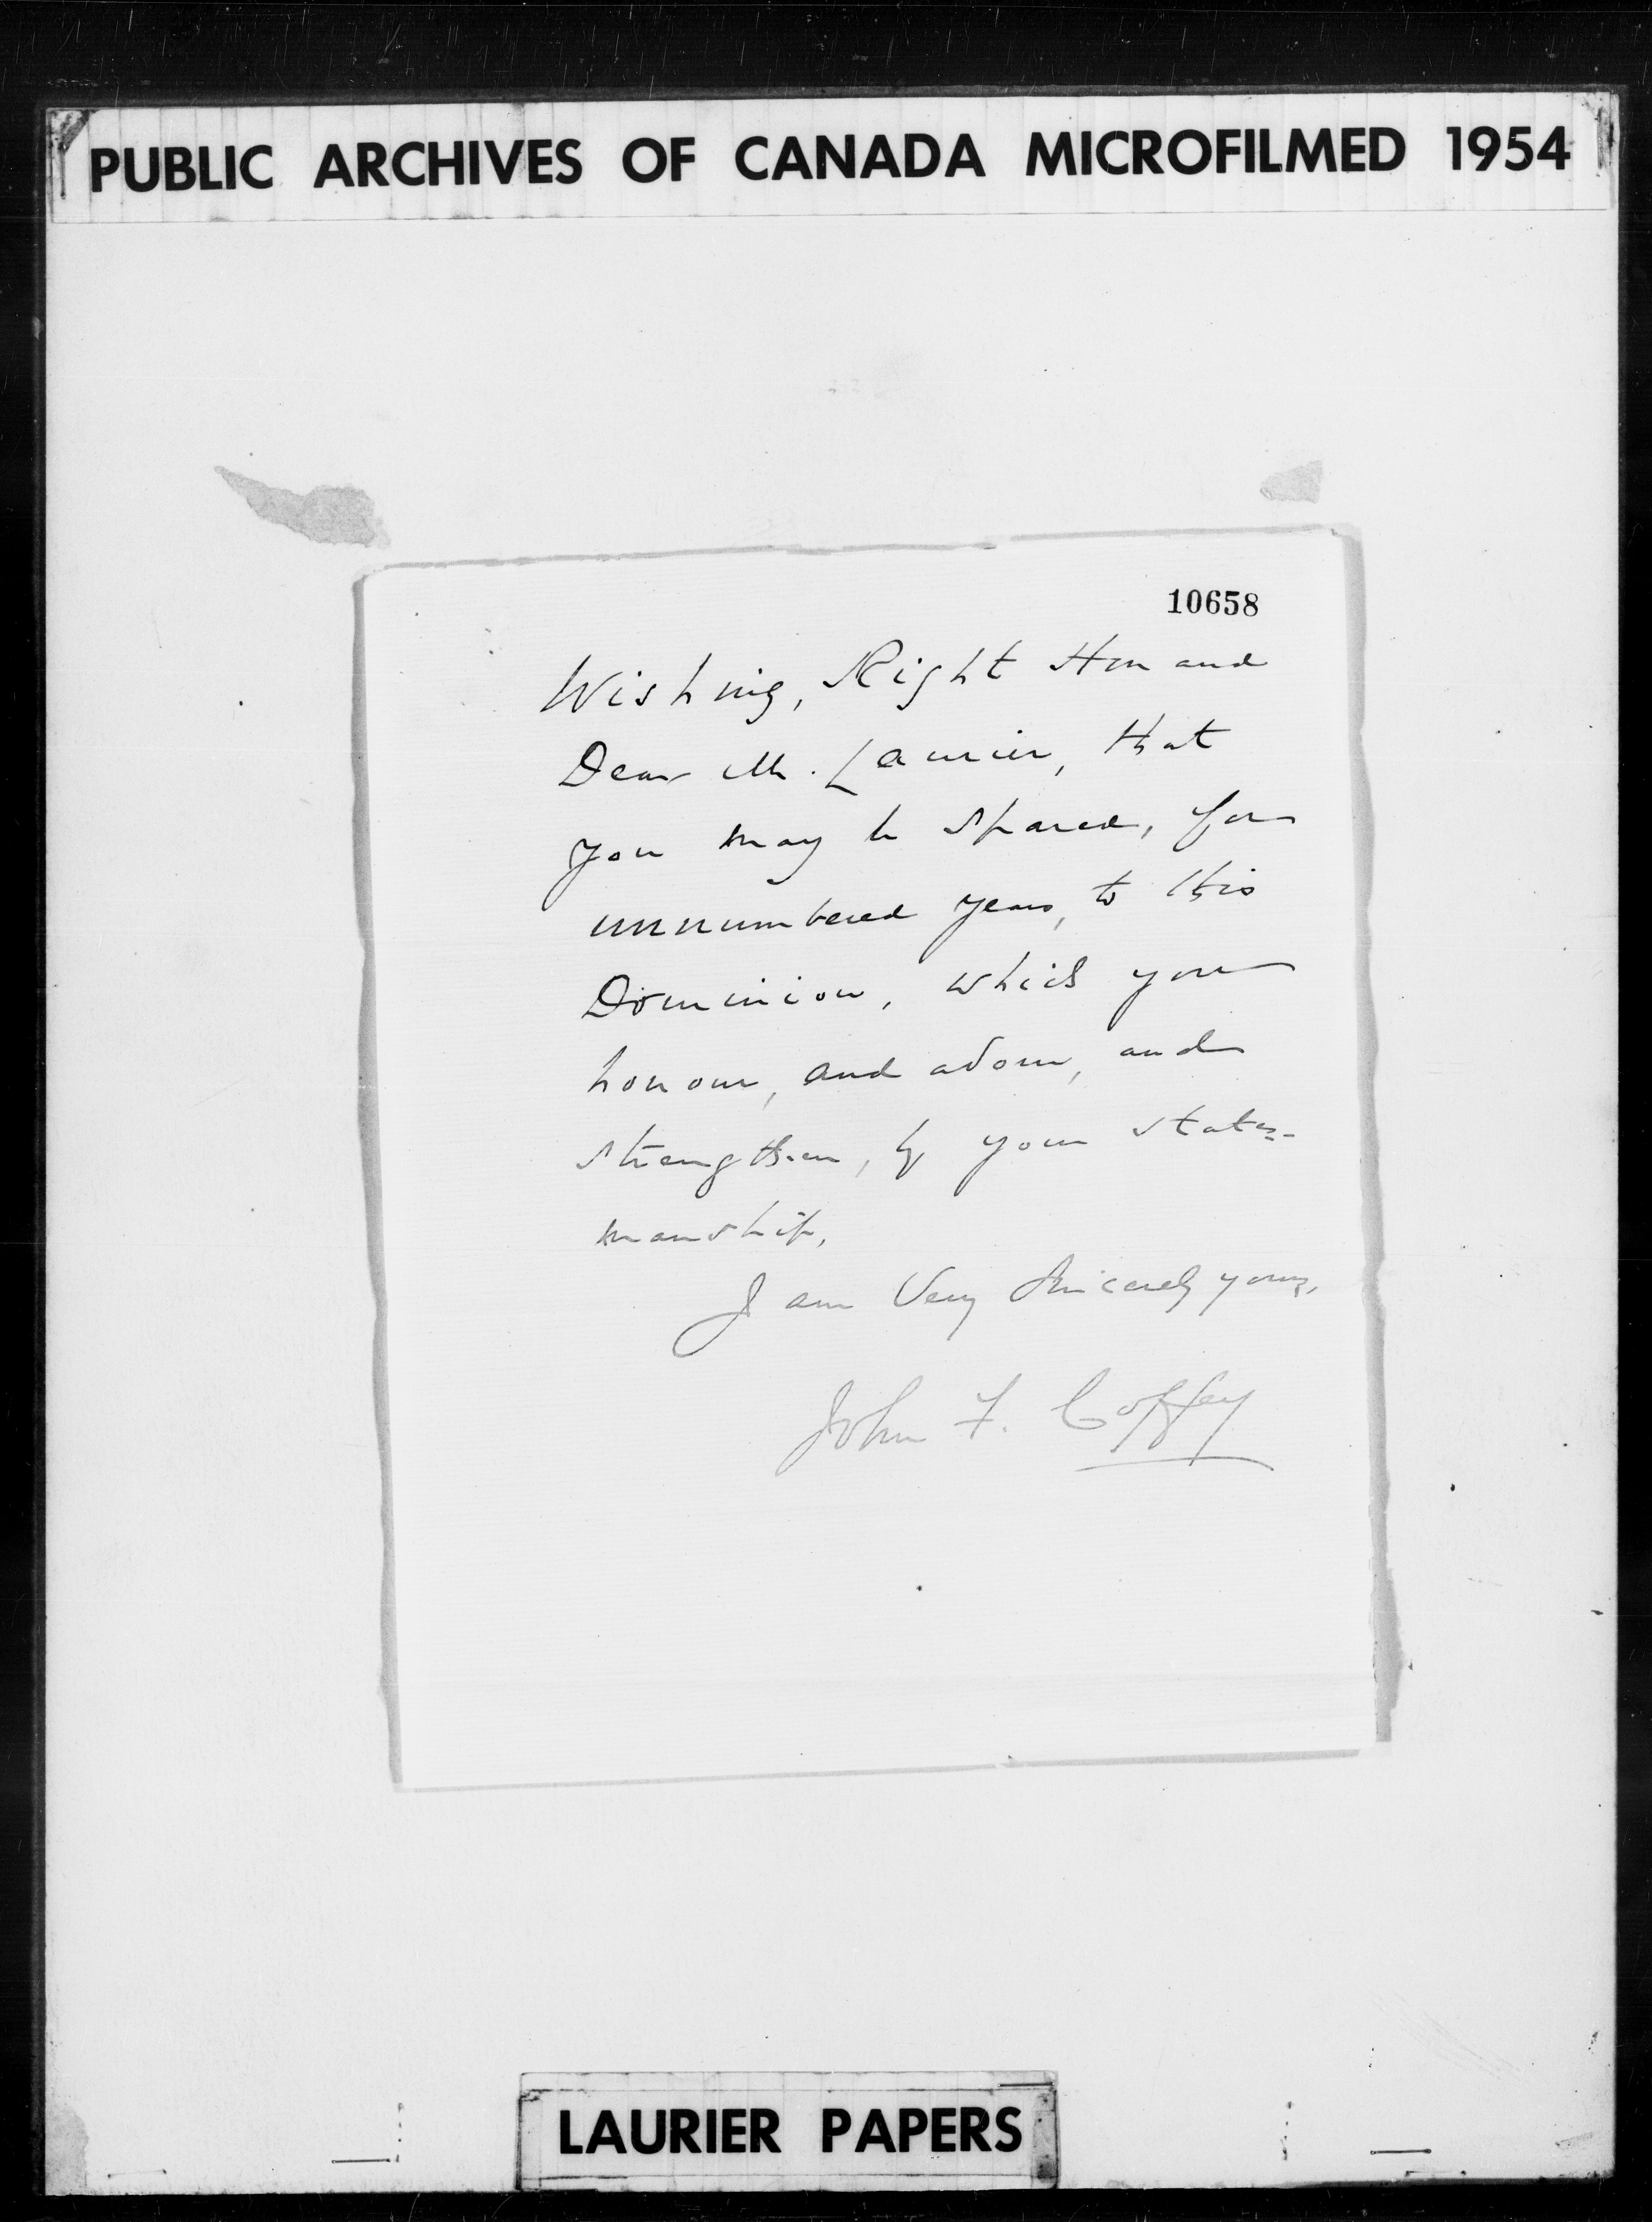 PUBLIC ARCHIVES OF CANADA MICROFILMED 1954
10658
Wishing, Right Hon and
Dear Mr. Laurier, that
you may be spared, for
unnumbered years, to this
Dominion, which you
honour, and adorn, and
strengthen, by your states-
manship,
I am Very Sincerely yours,
John F. Coffey
LAURIER PAPERS